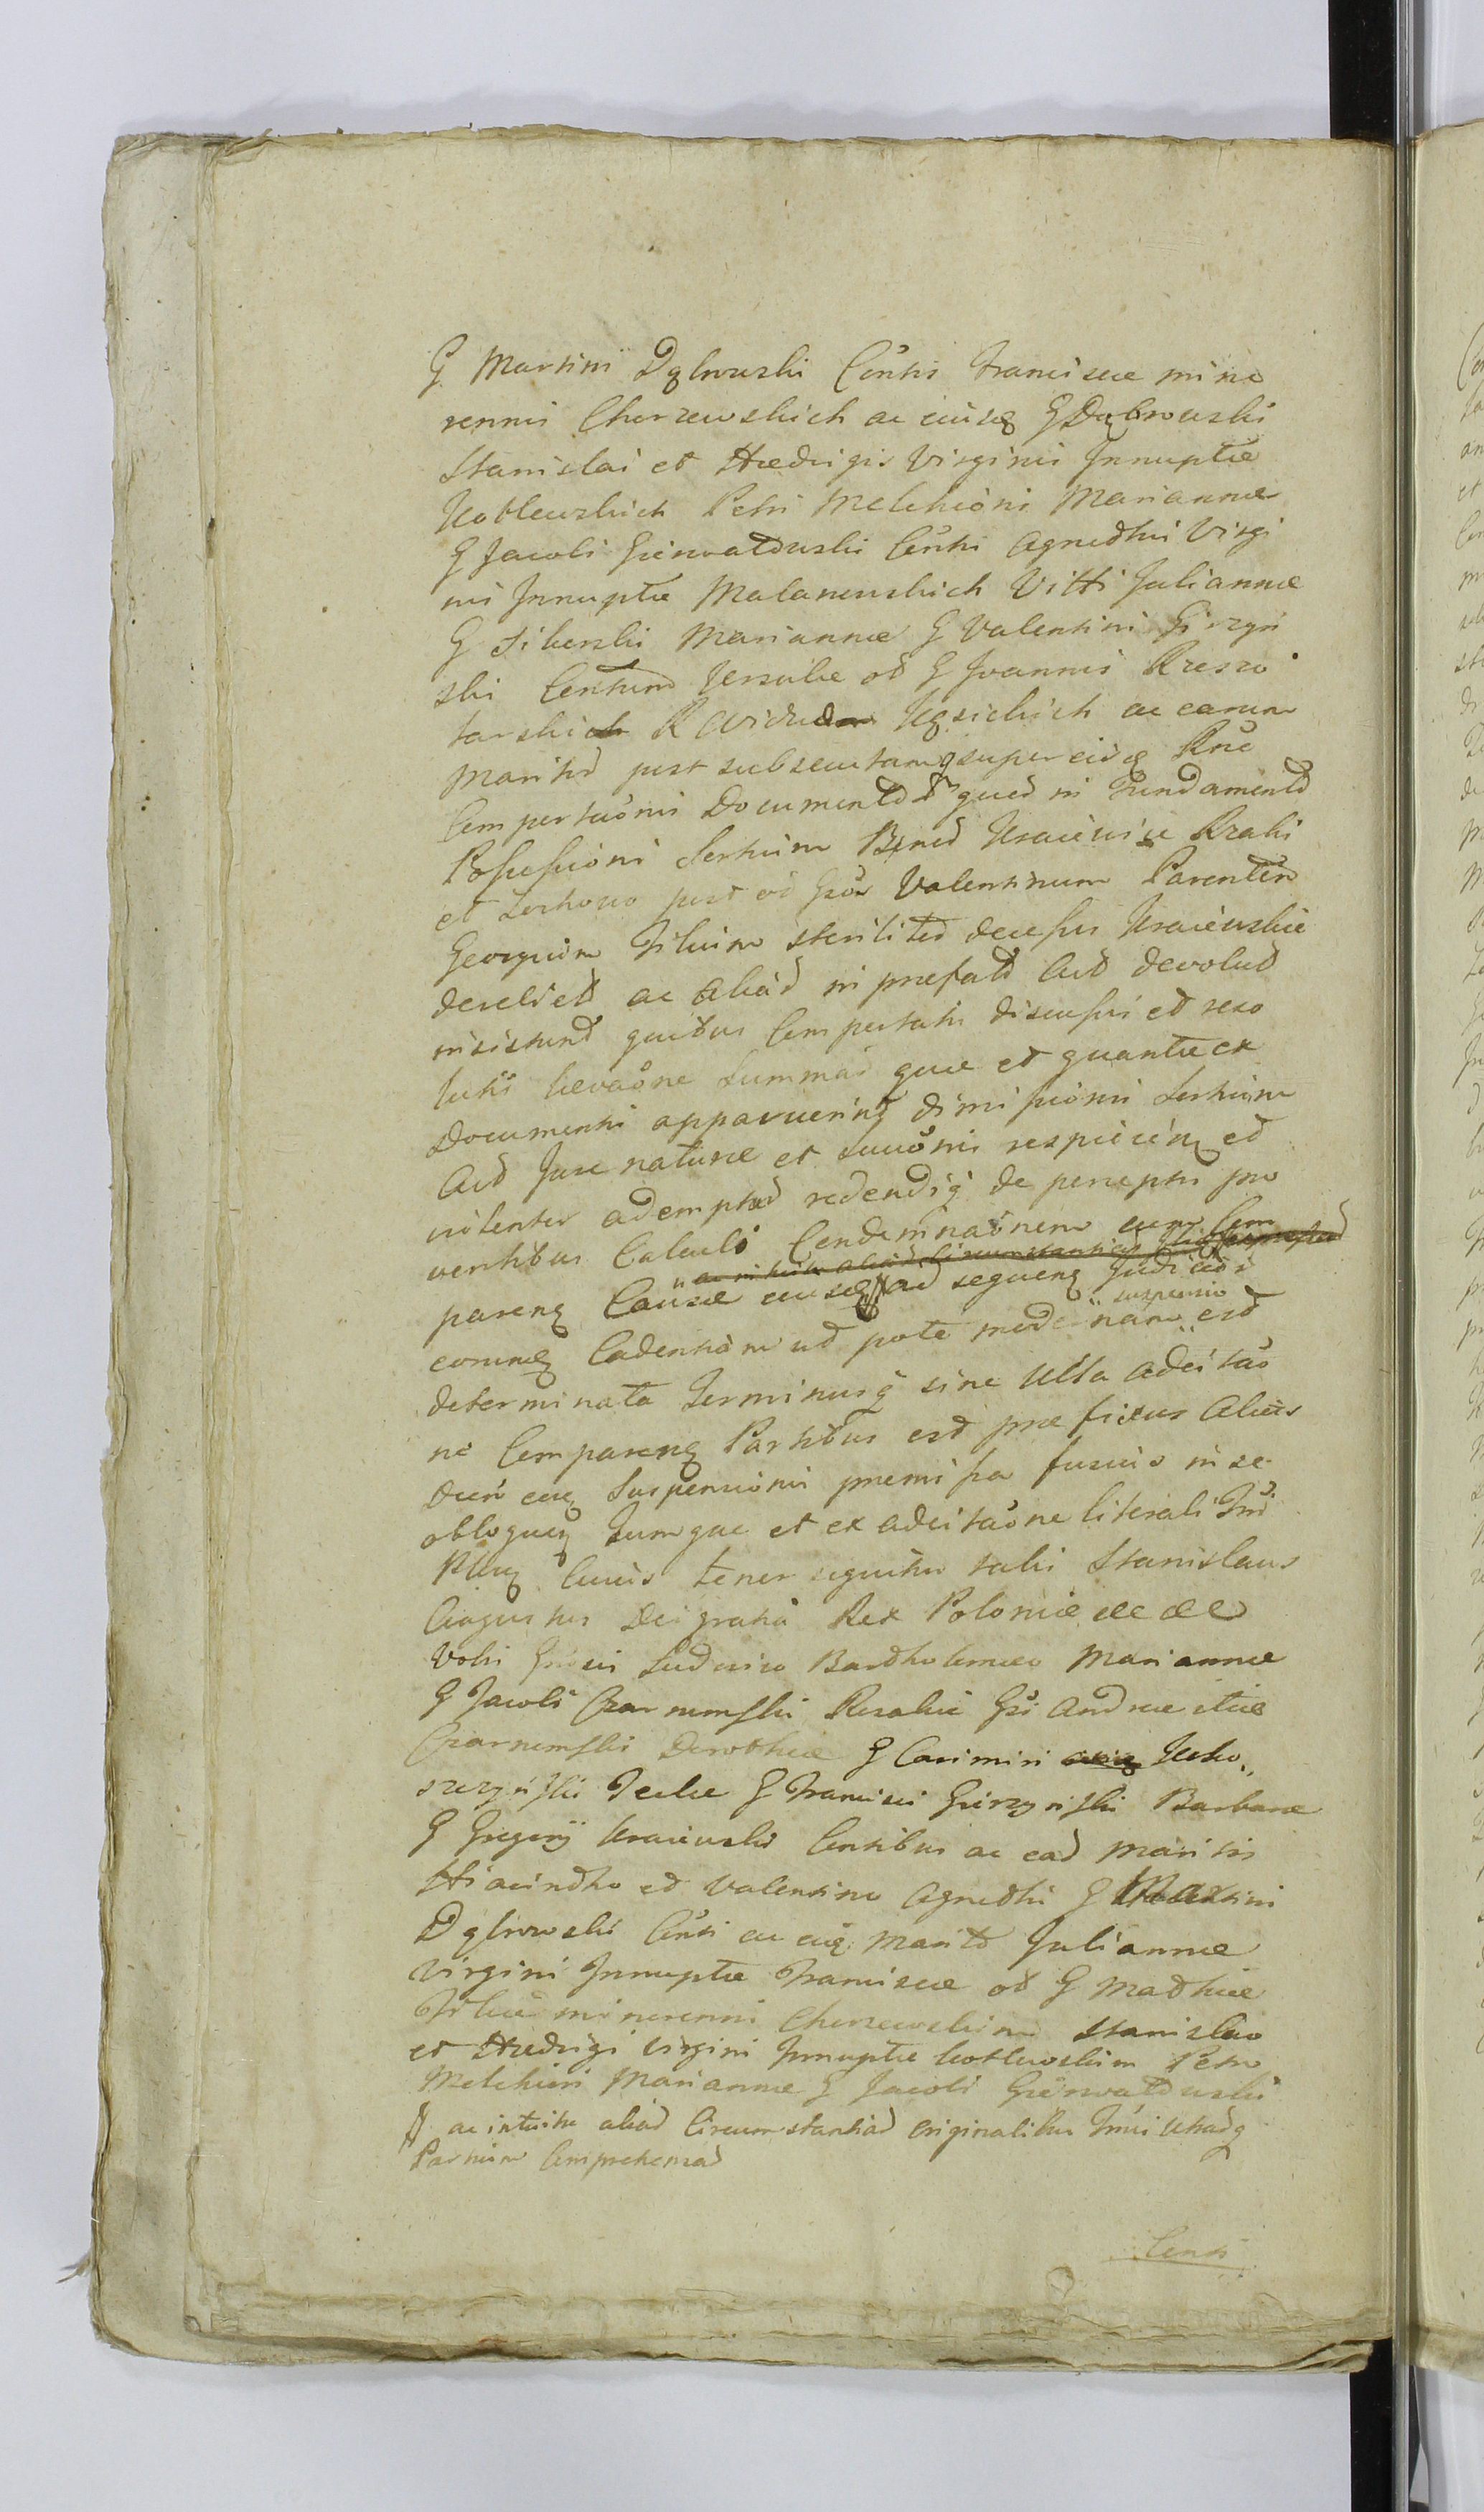 G Martini Dąbrowski Conthi Franciscæ mino
rennis Chorzewskich ac eiusq G Dąbrowski
Stanislai et Hædvigis Virginis Innuptæ
Kotlewskich Petri Melchioris Mariannæ
G Jacobi Grinwaldzski Conthi Agnethis Virgi
nis Innuptæ Malanowskich Vitti Juliannæ
G Sikorski Mariannæ G Valentini Girzyń
ski Consthum Ursulæ od G Joannis Krescio
tarskich R Viduæ Kąsickich ac earum
Marithd post subsecutamq super eisq Rne
Comportaonis Documentd quod in Fundamentd
Possessioni Sortium Bond Kraiewice Krahi
et Sochowo post od Gsos Valentinum Parentem
Georgium Filium steriliter decessis Kraiewskie
derelictd ac aliad in præfatd Actd devolutd
insistund quibus Comportatis discussis et reso
lutis levaone Summad quæ et quantæ ex
Documentis apparuerint dimissionis Sortium
Actd Jure naturæ et Suuonis respicienq ed
violenter ademptad redendiq de perceptis pro
ventibus Calculi Condemnaonem cum Com
pareng Causæ eiusq ad sequenq Judicior
eorumq Cadentiam ud pote medienam suspensio est
determinata Terminusq sine Ulla adcitao
ne Comparenq Partibus est præfixus Aliis
Dein eiuq Suspensionis præmissa fusius in se
obloquenq Tumque et ex adcitaone literali Tri
Plliq Cuius tenor sequitur talis Stanislaus
Augustus Dei gratia Rex Poloniæ &c &c &c
Vobis Gnosis Ludovico Bartholomeo Mariannæ
G Jacobi Czarnomski Rosaliæ Gsi Andreæ itid
Czarnomski Dorotheæ G Casimiri Koko„
szczyński Teclæ G Francisci Girzyński Barbaræ
G Gregorij Kraiewski Consthibus ac ead Maritis
Hiacintho ed Valentino Agnethi G Martini
Dąbrowski Conthi ac eiq Maritd Juliannæ
Virgini Innuptæ Franciscæ od G Mathiæ
Filiæ minorenni Chorzewskim Stanislao
et Hædvigi Virgini Innuptæ Kotlewskim Petro
Melchiori Mariannæ G Jacobi Grinwaldzski
ac intuitu aliad Circumstantiad Originalibus Trnis Utradq
Partium Comprehensad
Conthi